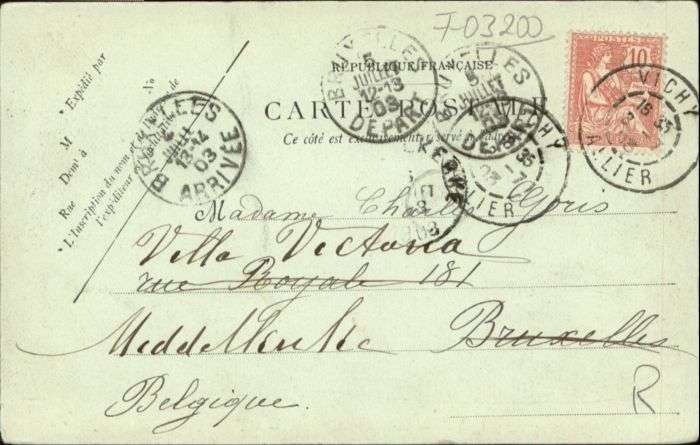 7-03200
RÉPUBLIQUE FRANÇAISE
CARTE POSTALE
Ce côté est exclusivement réservé à l'adresse
* Expédié par
M
Dem^t à
Rue
N^o
* L'inscription du nom et de l'adresse de
l'expéditeur est facultative
POSTES
10
VICHY
ALLIER
VICHY
ALLIER
BRUXELLES
5
JUILLET
12-13
03
DÉPART
BRUXELLES
5
JUILLET
03
DÉPART
BRUXELLES
JUIL
13-14
03
ARRIVÉE
Madame Charles Goris
Villa Victoria
rue Royale 181
Middelkerke Bruxelles
Belgique.
R